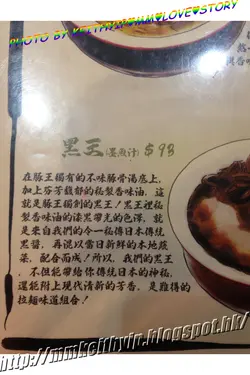 PHOTO BY KEITHYIR♥MM♥LOVE♥STORY
黑王(墨魚汁) $93
在豚王獨有的不味豚骨湯底上,
加上芬芳馥郁的秘製香味油, 這
就是豚王獨創的黑王!黑王裡秘
製香味油的漆黑帶光的色澤, 就
是來自我們的今一秘傳日本傳統
黑醬, 再混以當日新鮮的本地蔬
菜, 配合而成!所以, 我們的黑王
, 不但能帶給你傳統日本的神秘,
還能附上現代清新的芳香, 是難得的
拉麵味道組合!
http://mmkeithyir.blogspot.hk/